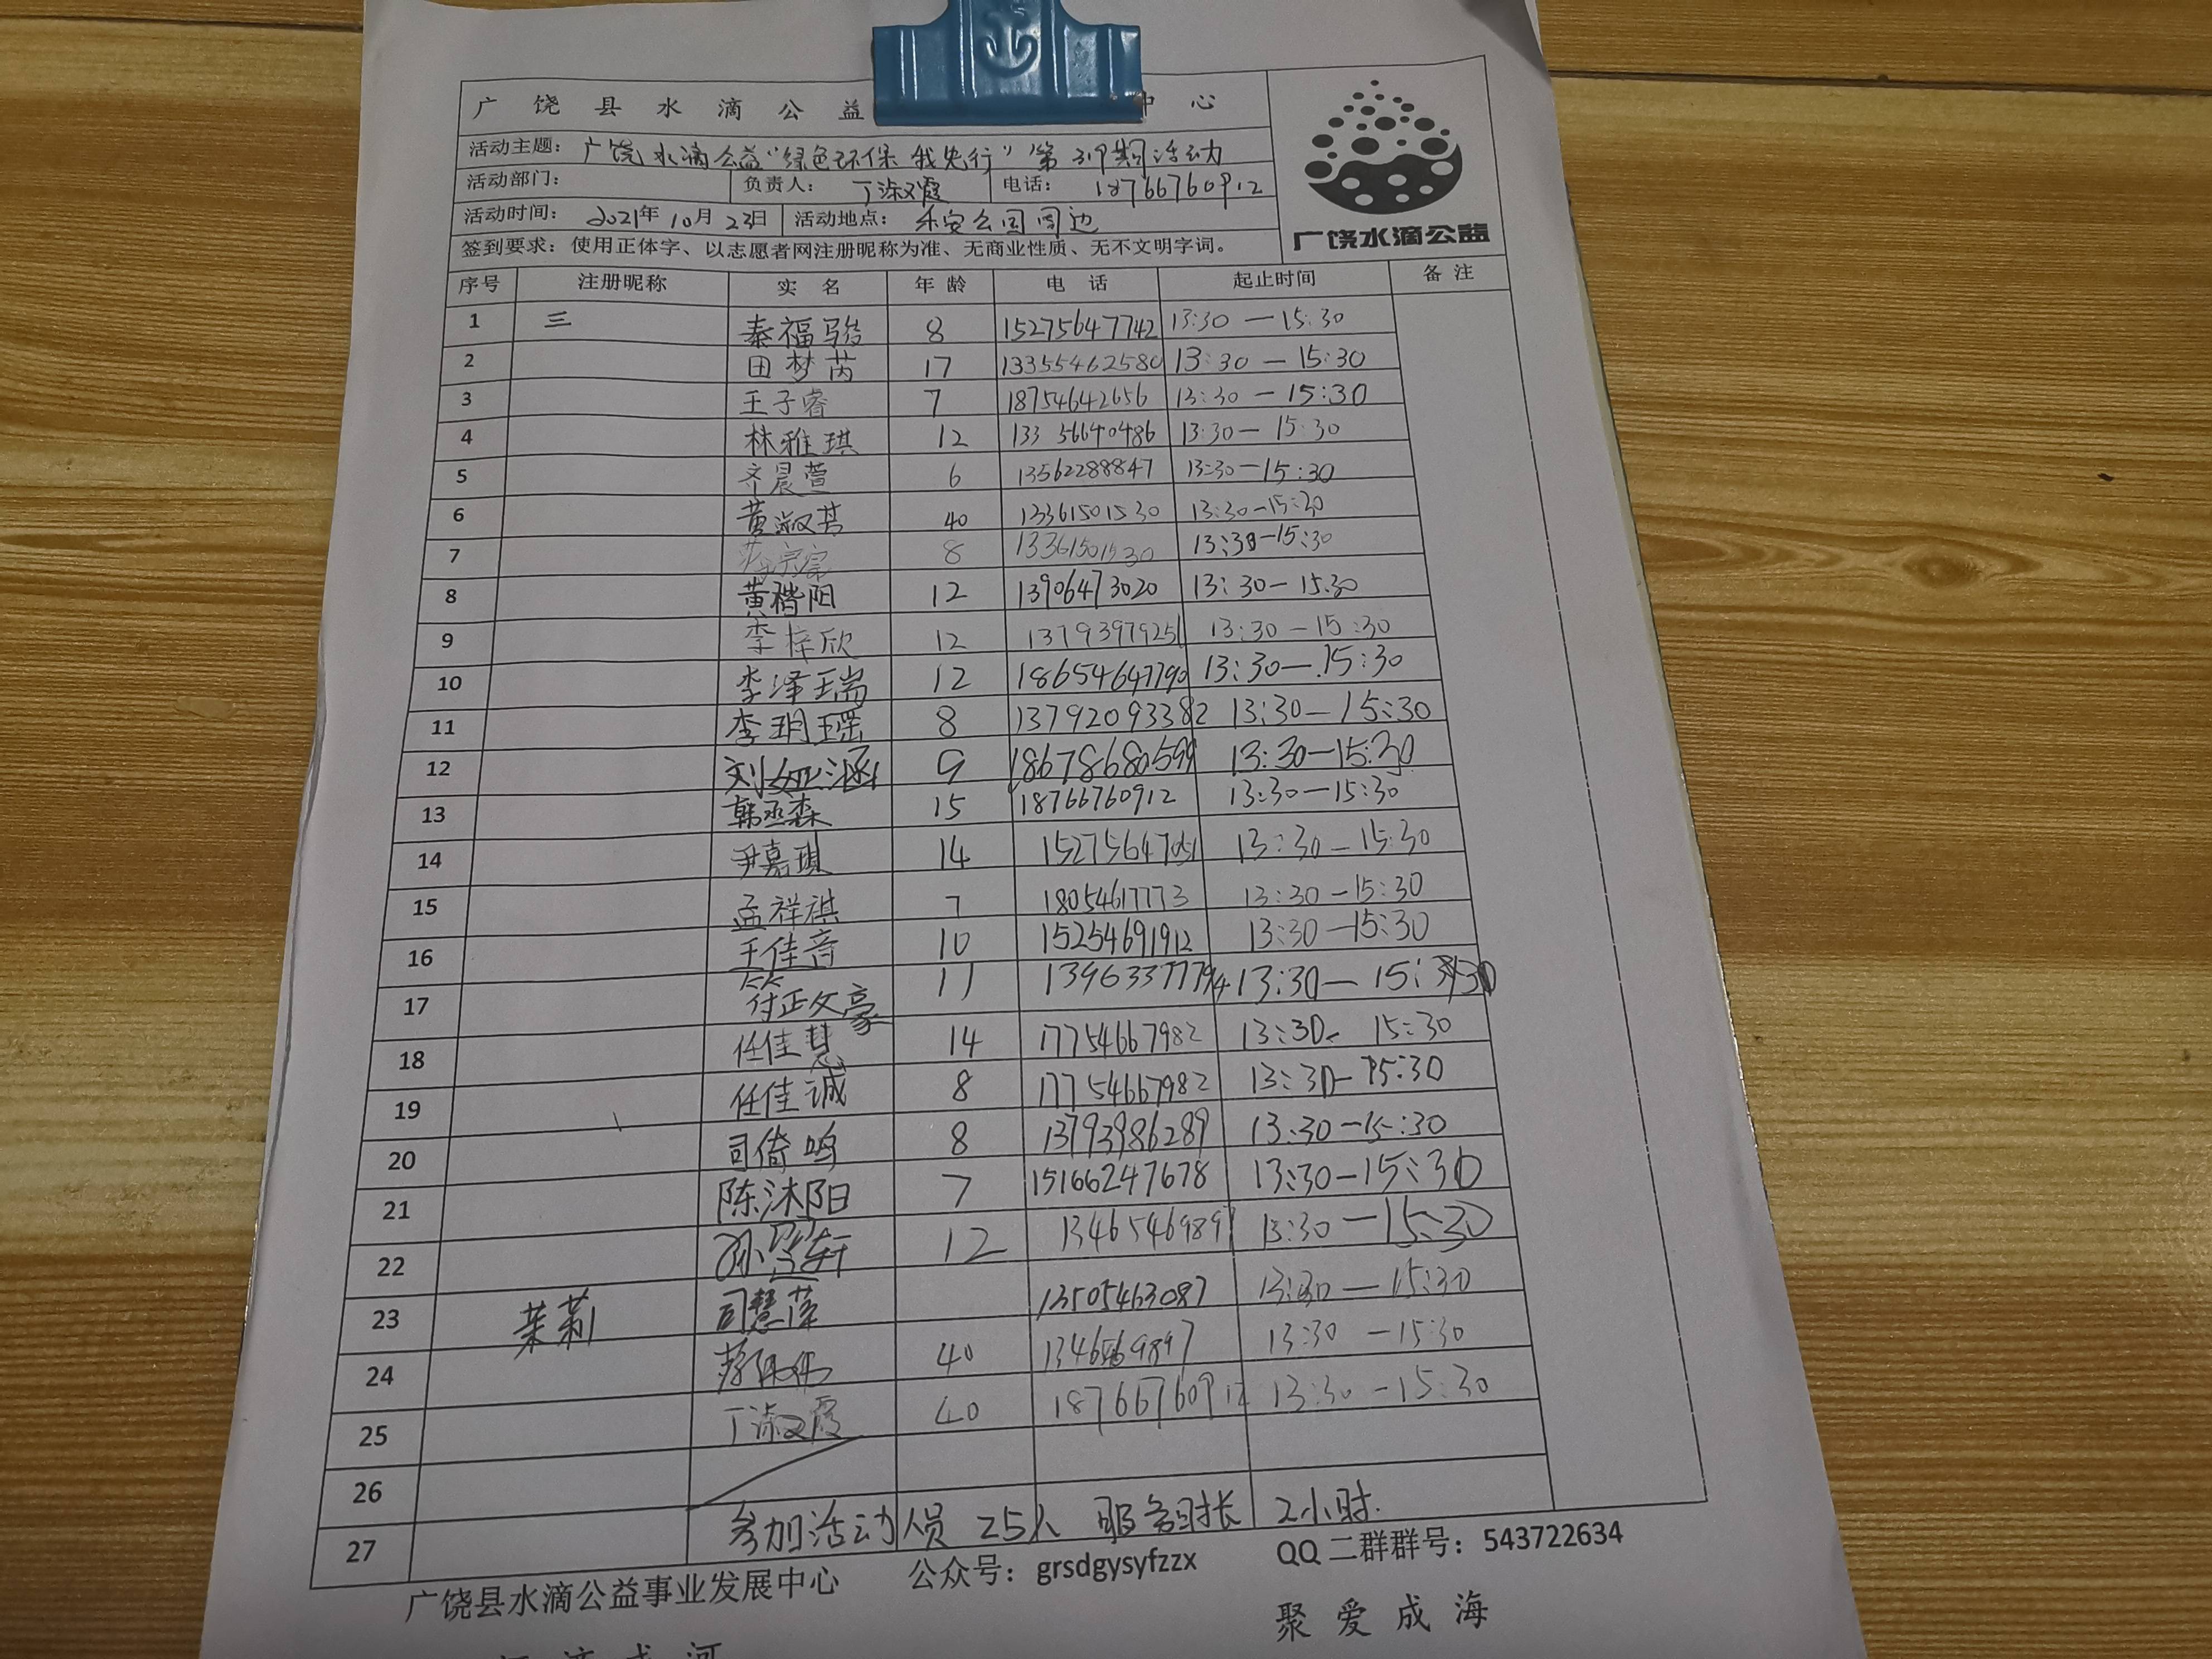 广饶县水滴公益 中心
活动主题：广饶水滴公益“绿色环保 我先行”第 期活动
活动部门： 负责人：丁淑霞 电话：18766760912
活动时间：2021年10月23日 活动地点：乐安公园周边
签到要求：使用正体字、以志愿者网注册昵称为准、无商业性质、无不文明字词。
广饶水滴公益
序号 注册昵称 实名 年龄 电话 起止时间 备注
1 三 秦福骏 8 15275647742 13:30—15:30
2 田梦芮 17 13355462580 13:30—15:30
3 王子睿 7 18754642656 13:30—15:30
4 林雅琪 12 13:30—15:30
5 齐晨萱 6 13562288847 13:30—15:30
6 黄淑芸 40 13361501530 13:30-15:30
7 8 13361501530 13:30-15:30
8 黄楷阳 12 13906473020 13:30-15:30
9 李梓欣 12 13793979251 13:30-15:30
10 李泽瑞 12 18654647790 13:30—15:30
11 李玥瑶 8 13792093382 13:30-15:30
12 刘娅涵 9 18678680599 13:30-15:30
13 韩丞森 15 18766760912 13:30-15:30
14 尹嘉琪 14 15275647051 13:30-15:30
15 孟祥祺 7 18054617773 13:30-15:30
16 王佳音 10 15254691912 13:30-15:30
17 付正文豪 11 13:30-15:30
18 任佳慧 14 17754667982 13:30-15:30
19 任佳诚 8 17754667982 13:30-15:30
20 司倚鸣 8 13793986289 13:30-15:30
21 陈沐阳 7 15166247678 13:30-15:30
22 孙 轩 12 13465469897 13:30—15:30
23 茉莉 司慧萍 13505463087 13:30—15:30
24 40 13:30-15:30
25 丁淑霞 40 18766760912 13:30-15:30
26
27 参加活动人员25人 服务时长2小时.
广饶县水滴公益事业发展中心 公众号：grsdgysyfzzx QQ二群群号：543722634
聚爱成海